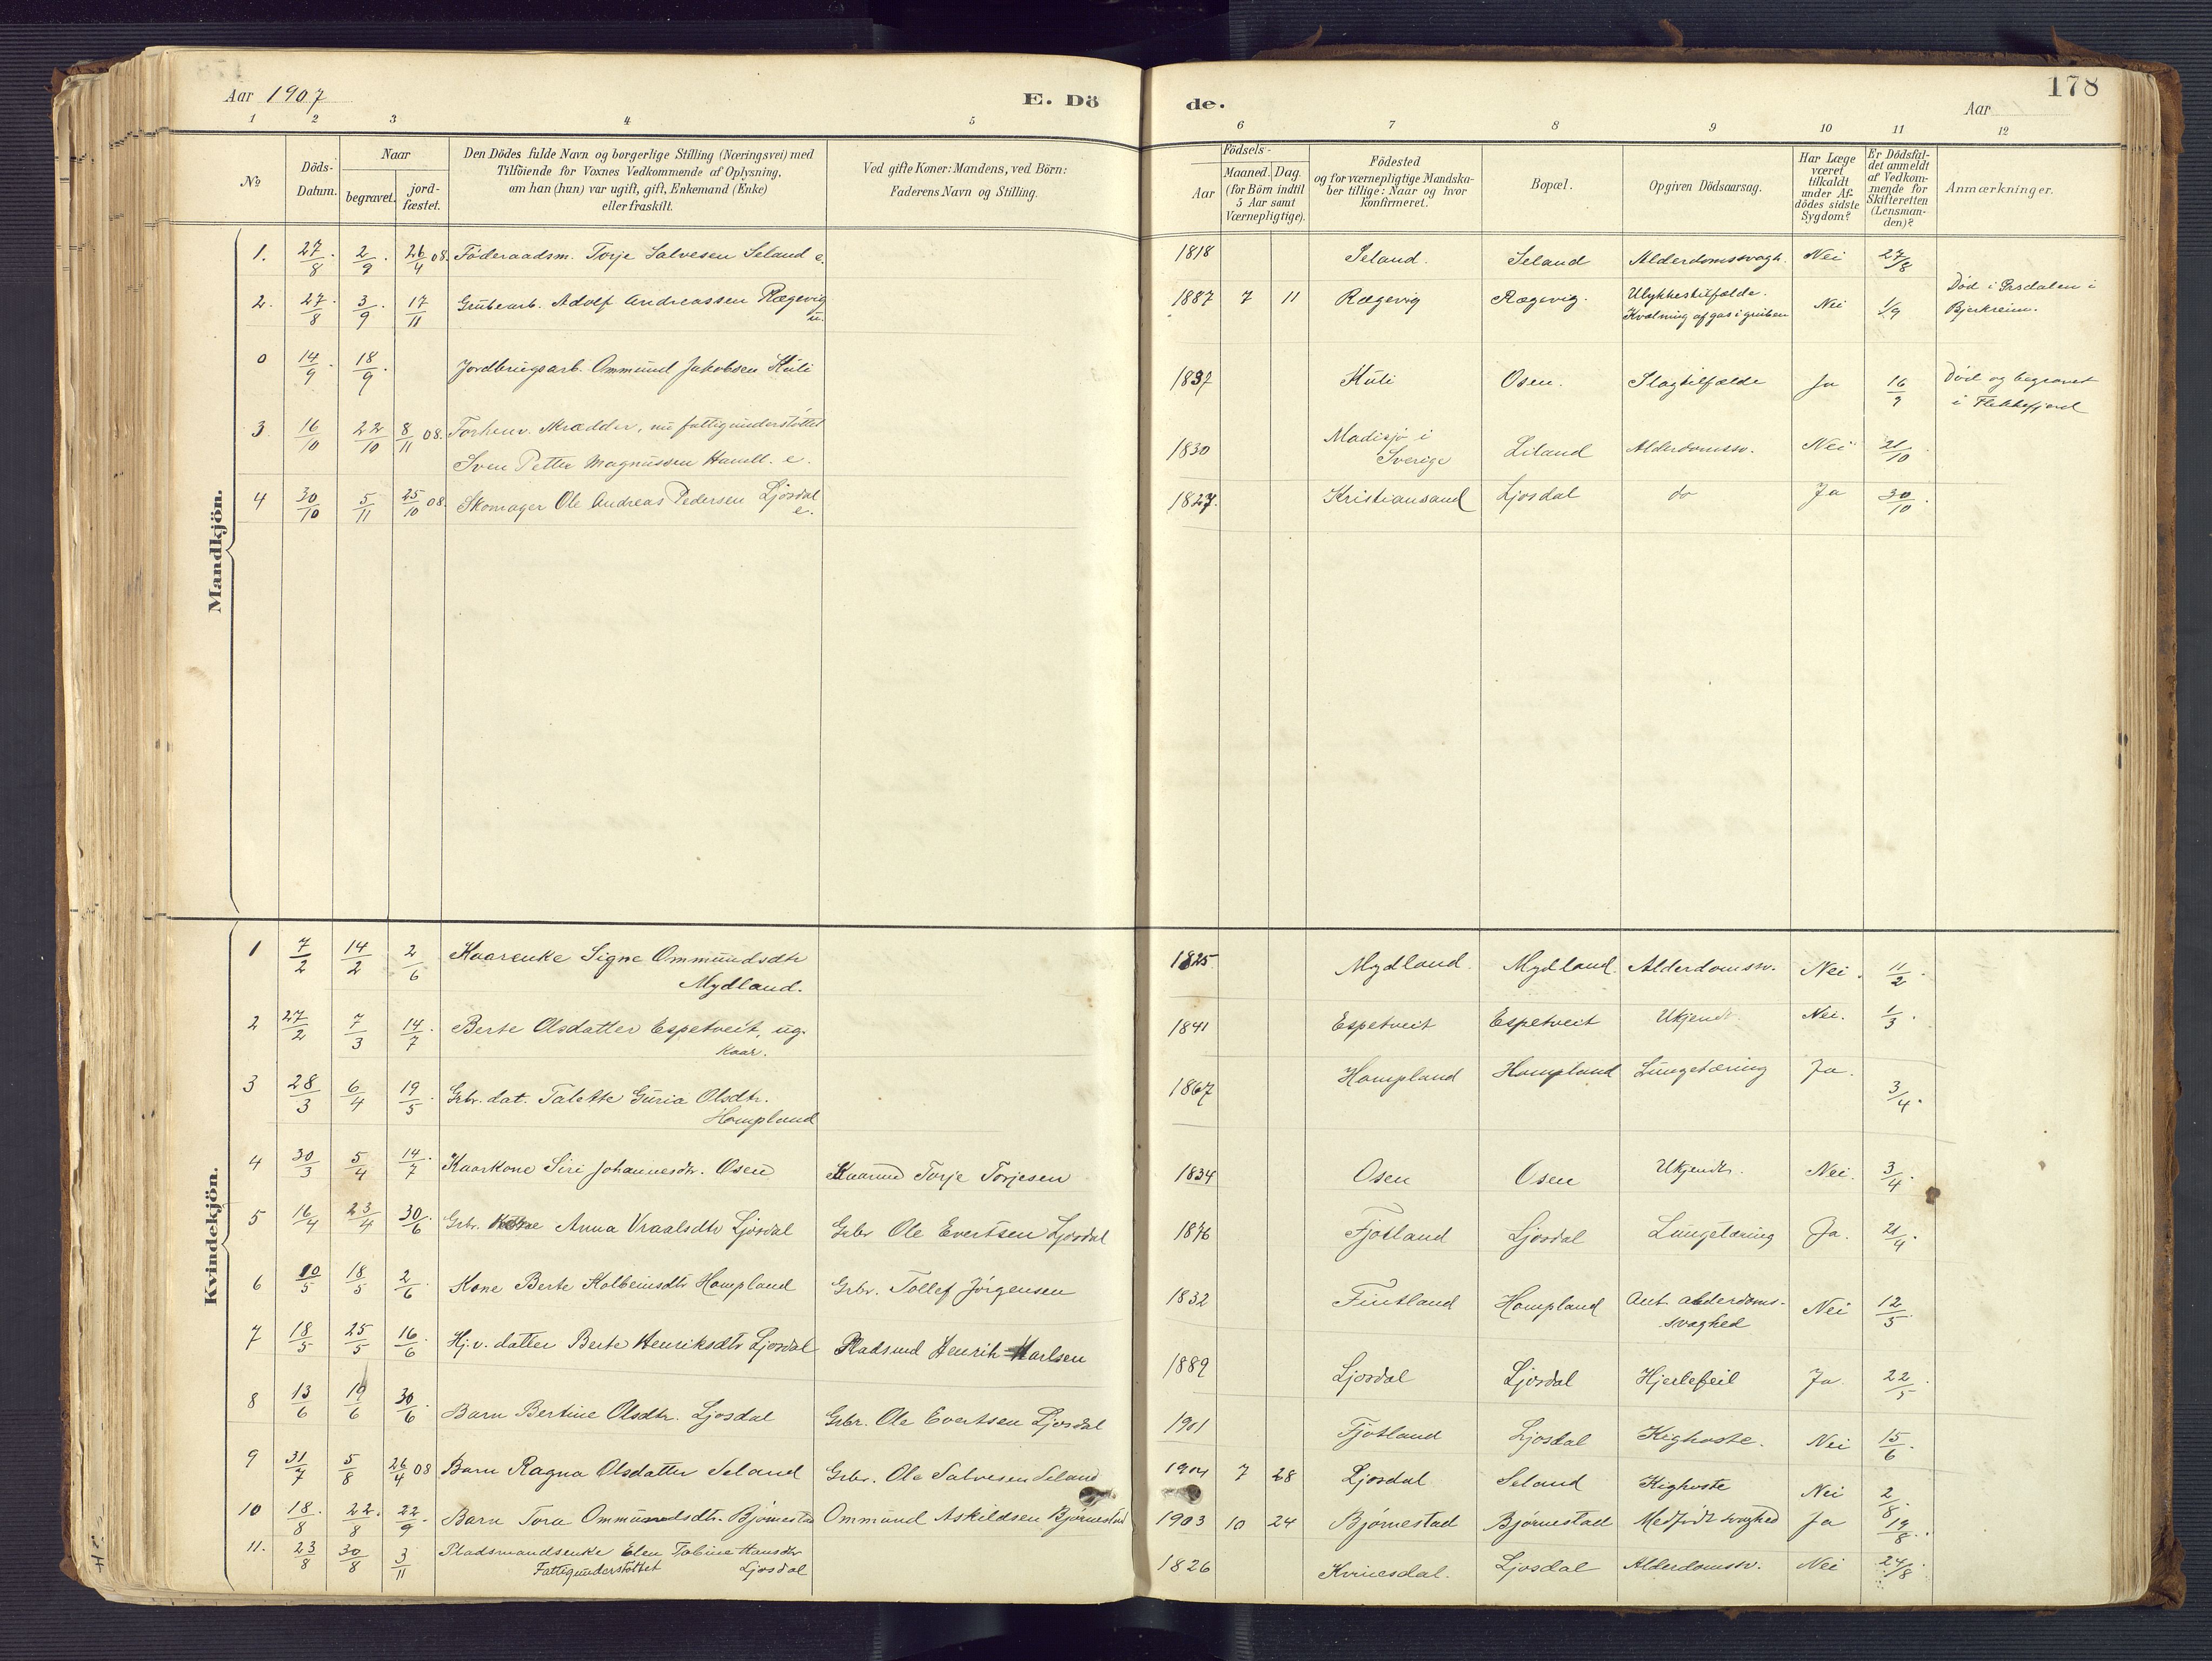 Aar 1907
E. Dö
de.
178
Aar
1 2 3 4 5 6 7 8 9 10 11 12
No
Döds-
Datum.
Naar
begravet.
jord-
fæstet.
Den Dödes fulde Navn og borgerlige Stilling (Næringsvei) med
Tilföiende for Voxnes Vedkommende af Oplysning,
om han (hun) var ugift, gift, Enkemand (Enke)
eller fraskilt.
Ved gifte Koner: Mandens, ved Börn:
Faderens Navn og Stilling.
Födsels-
Aar
Maaned. Dag.
(for Börn indtil
5 Aar samt
Værnepligtige).
Födested
og for værnepligtige Mandska-
ber tillige: Naar og hvor
konfirmeret.
Bopæl.
Opgiven Dödsaarsag.
Har Læge
været
tilkaldt
under Af-
dödes sidste
Sygdom?
Er Dödsfal-
det anmeldt
af Vedkom-
mende for
Skifteretten
(Lensman-
den)?
Anmærkninger.
Mandkjön.
1. 27/8. 2/9. 26/4 08. Föderaadsm. Torje Salvesen Seland e. 1818 Seland. Seland Alderdomssvagh. Nei 27/8
2. 27/8. 3/9. 17/11 Grubearb. Adolf Andreassen Rægevig 1887 7 11 Rægevig Rægevig. Ulykkestilfælde. Nei 1/9 Död i Örsdalen i
u. Kvælning af gas i gruben Bjerkreim.
0 14/9. 18/9. Jordbrugsarb. Ommund Jakobsen Kuli 1837 Kuli Osen. Slagtilfælde Ja 16/9 Död og begravet
i Flekkefjord
3 16/10 22/10 8/11 08. Forhenv. Skrædder, nu fattigunderstöttet
Sven Petter Magnussen Hamll. e. 1830 Madisjö i Liland Alderdomssv. Nei 21/10
Sverige
4 30/10 5/11 25/10 08. Skomager Ole Andreas Pedersen Ljosdal 1827. Kristiansand Ljosdal do Ja 30/10
e.
Kvindekjön.
1 7/2 14/2 2/6 Kaarenke Signe Ommundsdtr 1825 Mydland. Mydland. Alderdomssv. Nei. 11/2.
Mydland.
2 27/2 7/3 14/7. Berte Olsdatter Espetveit, ug. 1841 Espetveit Espetveit Ukjendt. Nei. 1/3.
Kaar.
3 28/3 6/4 19/5. Grbr. dat. Talette Guria Olsdtr. 1867 Hompland Hompland Lungetæring Ja. 3/4.
Hompland
4 30/3 5/4 14/7. Kaarkone Siri Johannesdtr. Osen Kaarmd Torje Torjesen 1834 Osen Osen Ukjendt. Nei. 3/4.
5 16/4 23/4 30/6. Grbr. Kone Anna Vraalsdtr Ljosdal Grbr Ole Evertsen Ljosdal 1876 Fjotland Ljosdal Lungetæring Ja. 21/4.
6 10/5 18/5 2/6. Kone Berte Kolbeinsdtr Hompland Grbr. Tollef Jörgensen 1832 Fintland Hompland Ant. alderdoms- Nei 12/5.
svaghed
7 18/5 25/5 16/6. Hj.v. datter Berte Henriksdtr Ljosdal Pladsmd Henrik Karlsen 1889 Ljosdal Ljosdal Hjertefeil Ja 22/5.
8 13/6 19/6 30/6. Barn Bertine Olsdtr. Ljosdal Grbr. Ole Evertsen Ljosdal 1901 Fjotland Ljosdal Kighoste. Nei 15/6.
9 31/7 5/8 26/4 08 Barn Ragna Olsdatter Seland Grbr. Ole Salvesen Seland 1904 7 28 Ljosdal Seland Kighoste Nei 2/8.
10 18/8. 22/8. 22/9. Barn Tora Ommundsdtr. Björnestad Ommund Askildsen Björnestad 1903 10 24 Björnestad Björnestad Medfödt svaghed Ja 19/8.
11. 23/8 30/8 3/11 Pladsmandsenke Elen Tobine Hansdtr 1826 Kvinesdal. Ljosdal Alderdomssv. Nei 24/8.
Fattigunderstöttet Ljosdal